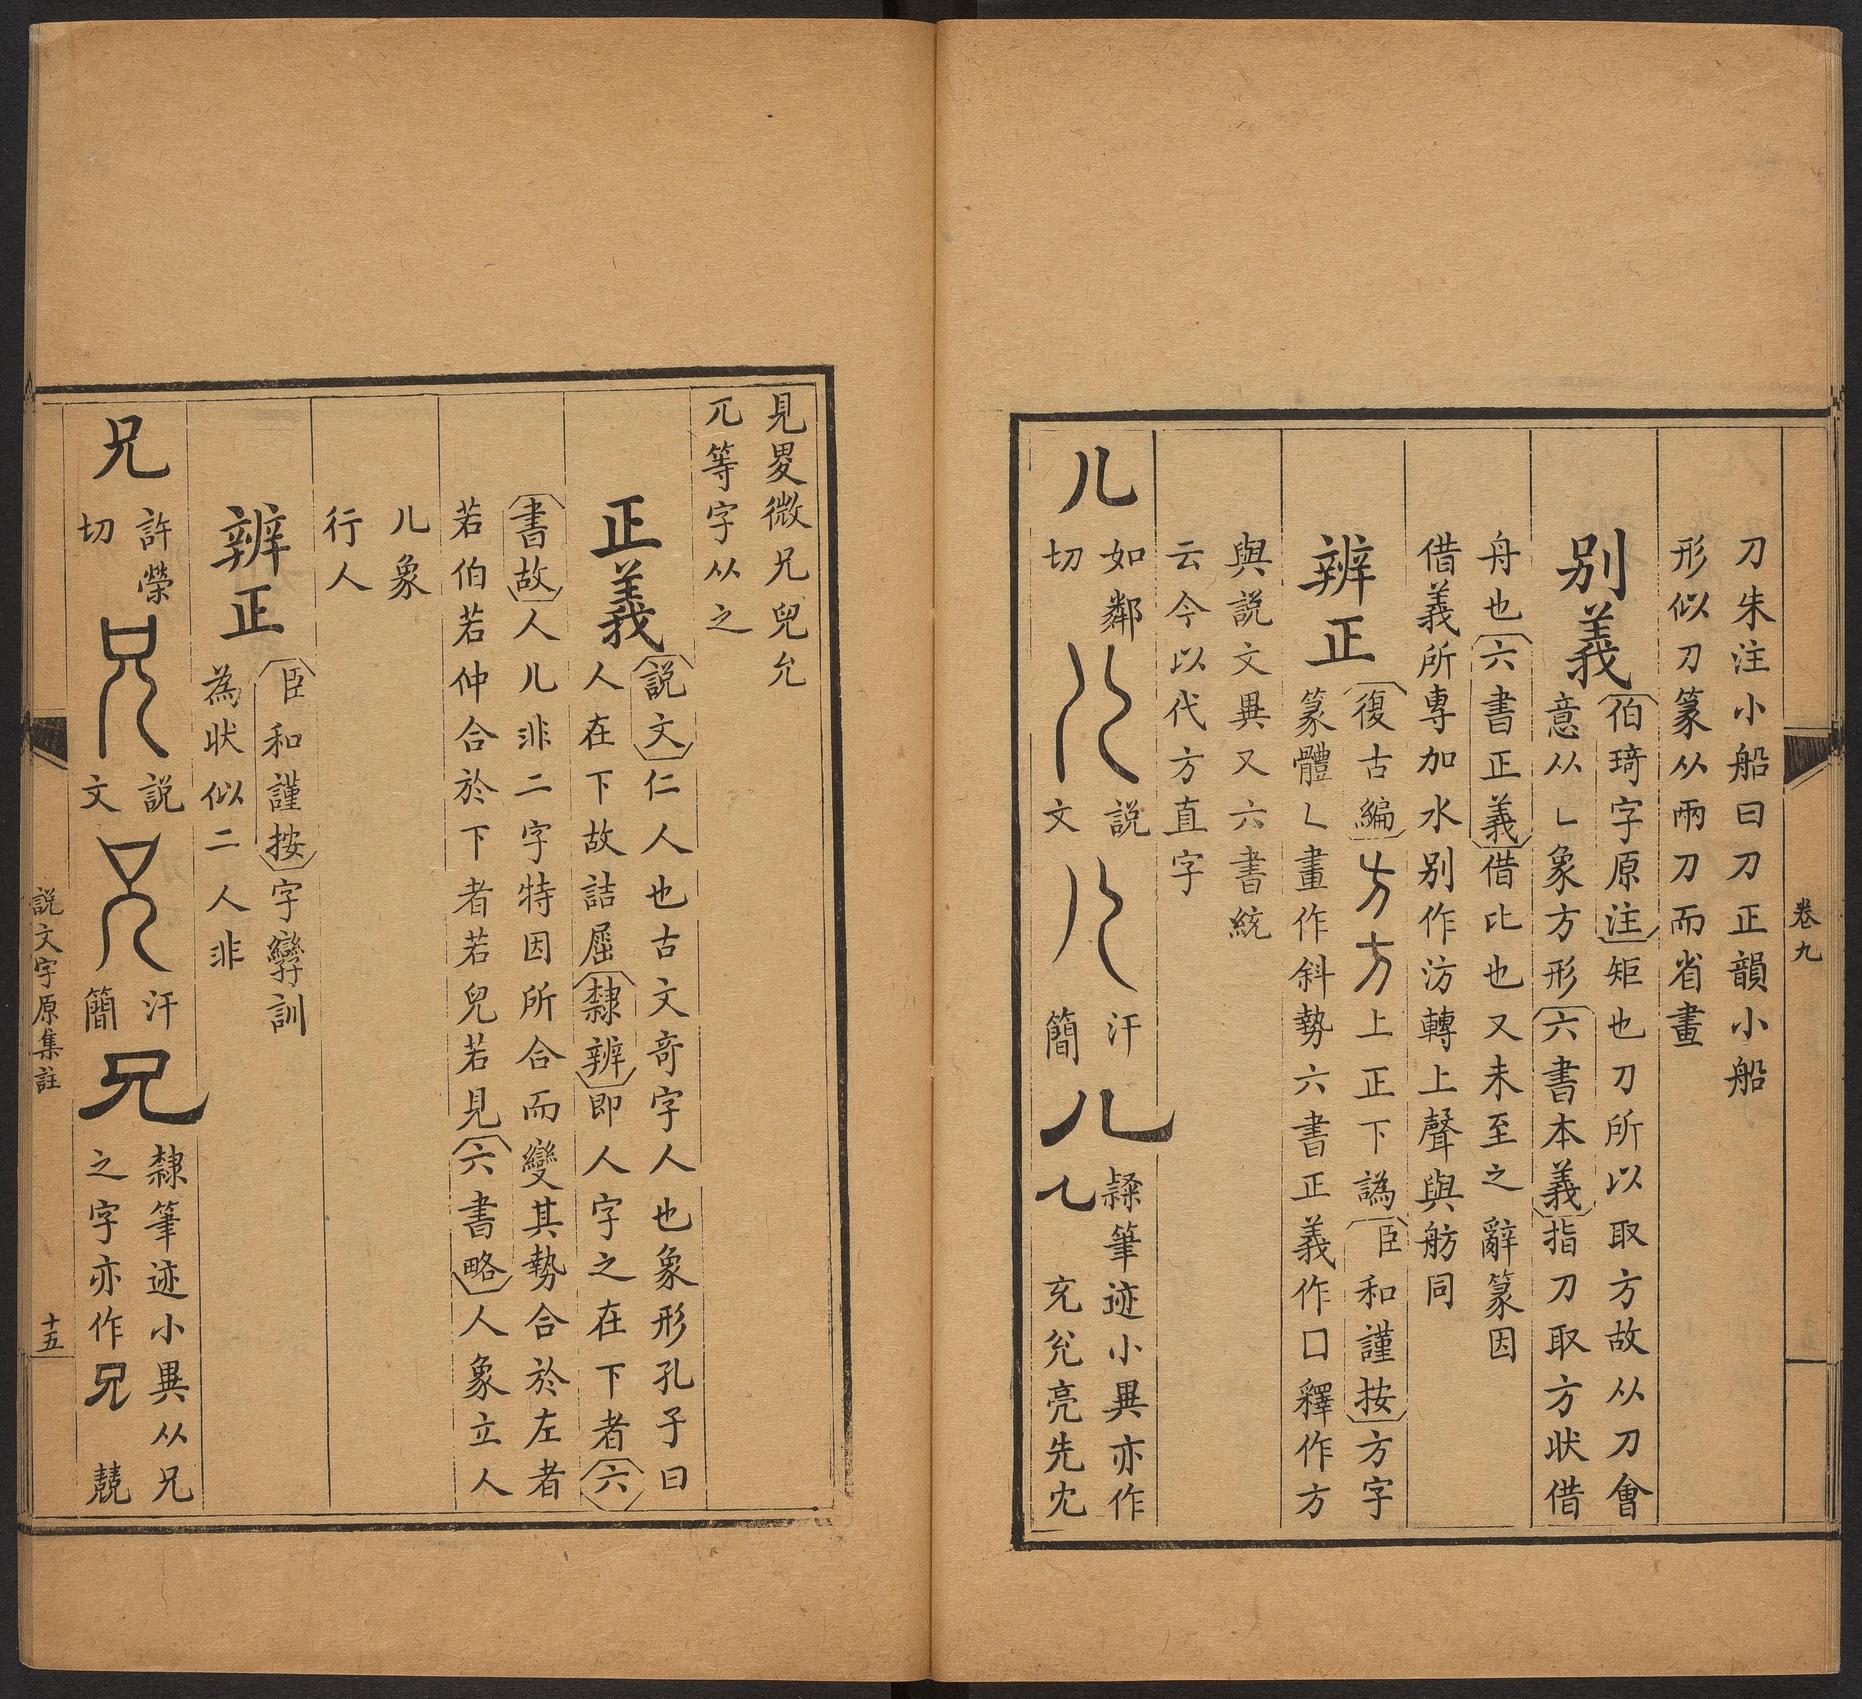 卷九
刀朱注小船曰刀正韻小船
形似刀篆从兩刀而省畫
别義
伯琦字原注矩也刀所以取方故从刀會
意从乚象方形六書本義指刀取方状借
舟也六書正義借比也又未至之辭篆因
借義所專加水别作汸轉上聲與舫同
辨正
復古編方方上正下譌臣和謹按方字
篆體乚畫作斜勢六書正義作口釋作方
與説文異又六書統
云今以代方直字
儿
如鄰
切
説
文
汗
簡
儿
隸筆迹小異亦作
充兊亮先冘
見㚇微兄兒允
兀等字从之
正義
説文仁人也古文竒字人也象形孔子曰
人在下故詰屈隸辨即人字之在下者六
書故人儿非二字特因所合而變其勢合於左者
若伯若仲合於下者若兒若見六書略人象立人
儿象
行人
辨正
臣和謹按字孿訓
為状似二人非
兄
許榮
切
兄
説
文
兄
汗
簡
兄
隸筆迹小異从兄
之字亦作兄 兢
説文字原集註
十五